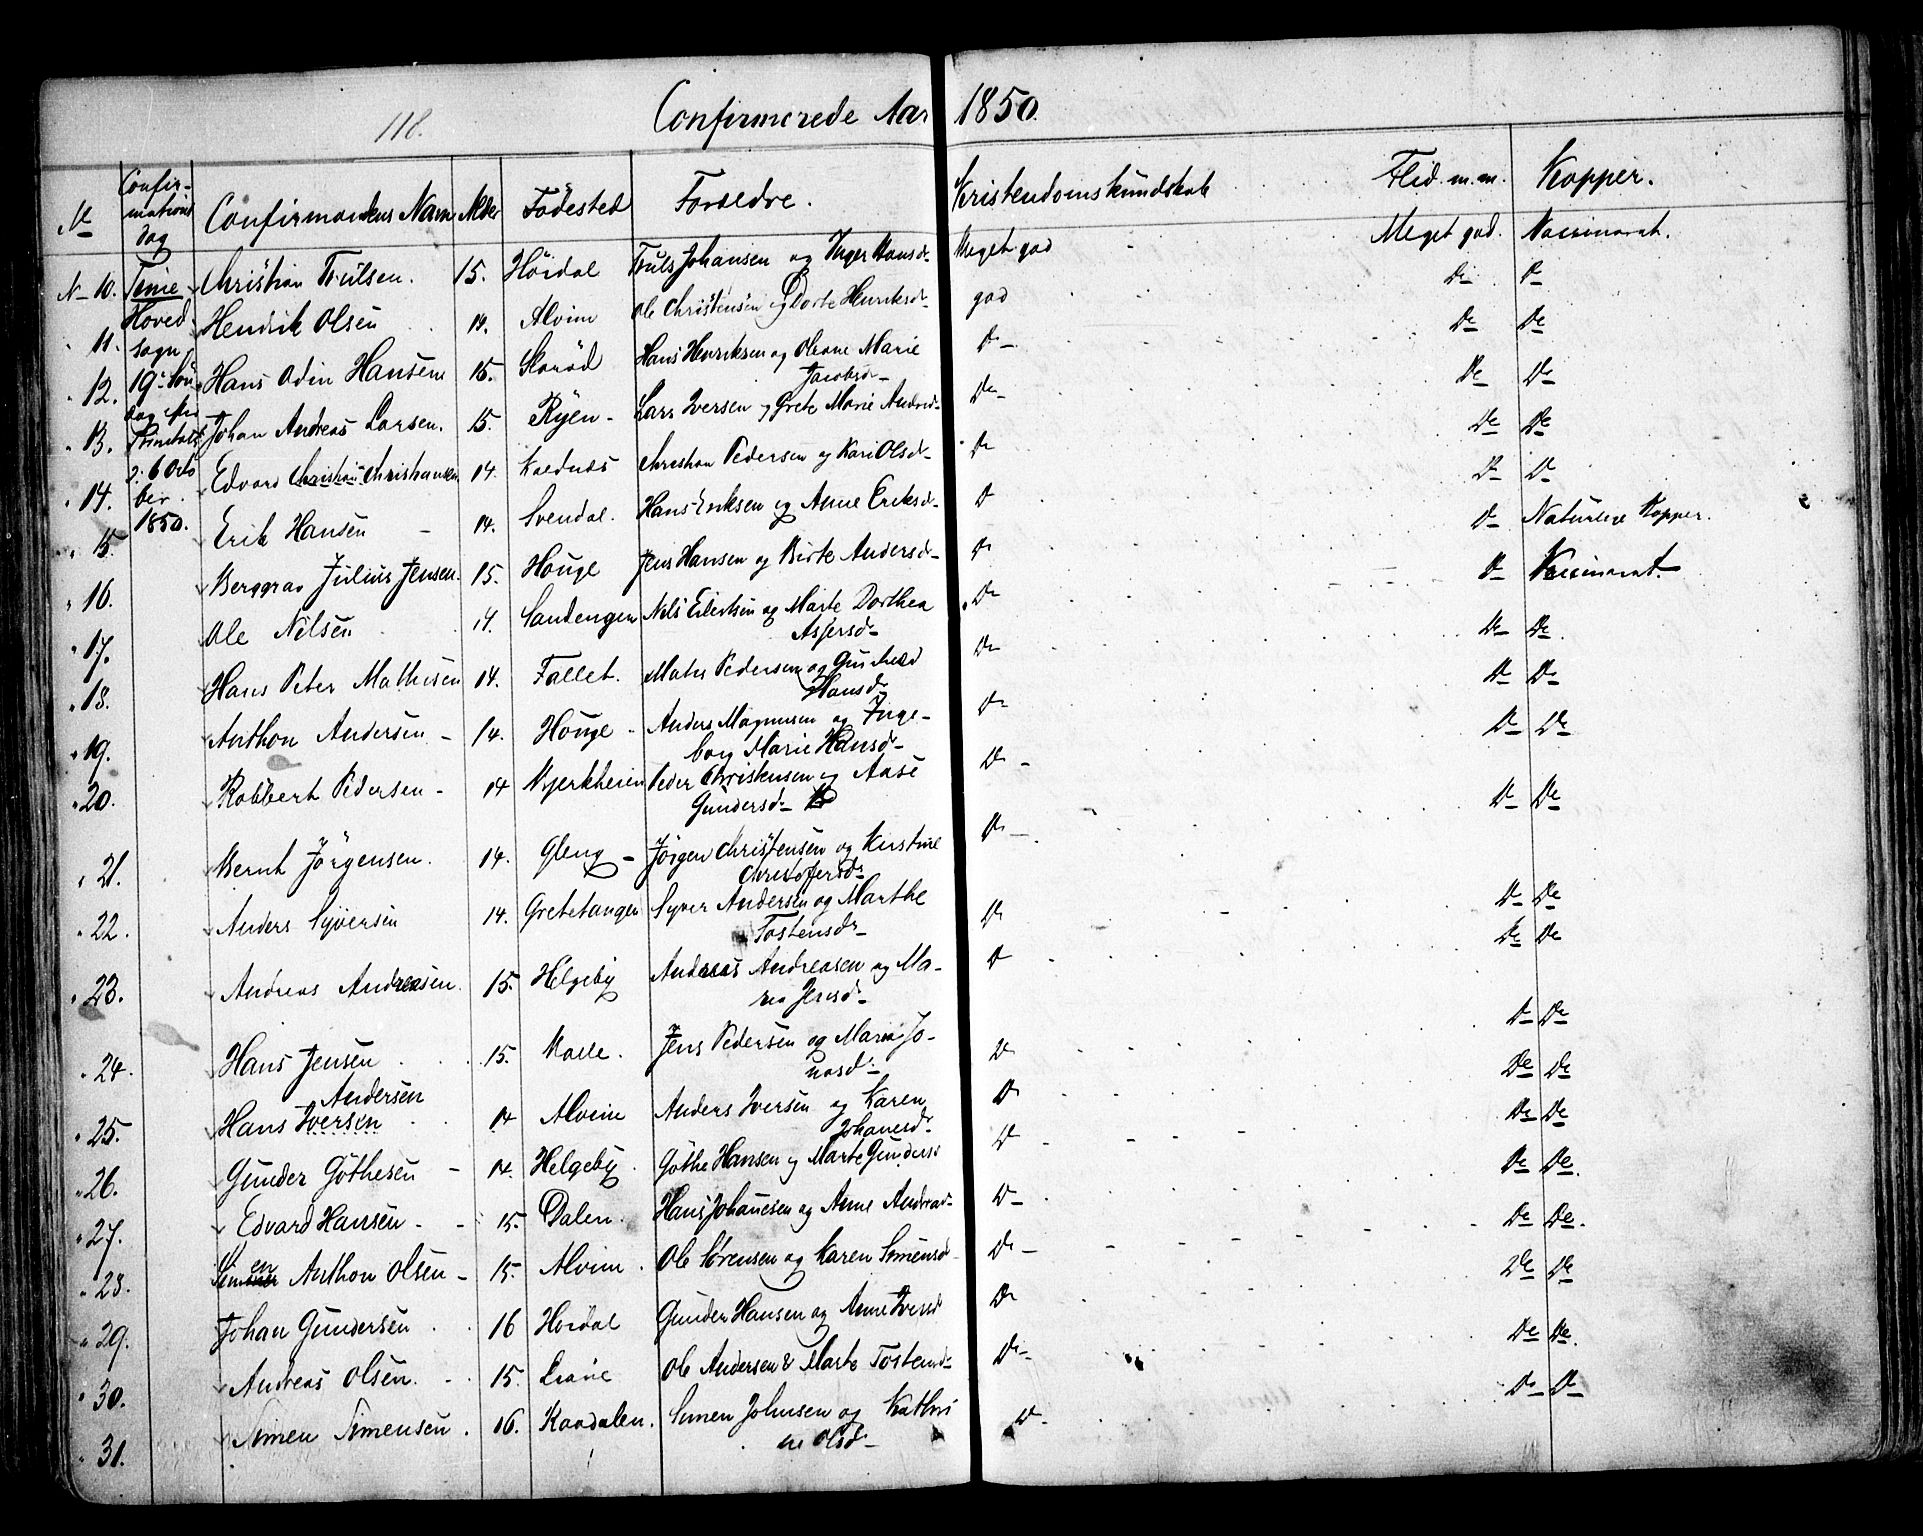 118.
Confirmerede Aar 1850.
No Confirmations dag Confirmandens Navn Alder Födested Foreldre. Kristendomskundskab Flid m.m. Kopper.
No 10. Tune Christian Trulsen. 15. Hördal Truls Johansen og Inger Hansd. Meget god Meget god. Vaccinerat.
11. Hoved sogn Hendrik Olsen 14. Alvim Ole Christensen og Dorte Henriksd. god Do Do
12. 19de Sön Hans Odin Hansen 15. Skoröd Hans Henriksen og Oleane Marie Jacobsd. Do Do Do
13. dag efter Trinitatis Johan Andreas Larsen. 15. Ryen Lars Iversen og Grete Marie Andersd. Do Do Do
14. d. 6 Octo Edvard Christian Christiansen 14. Christian Pedersen og Kari Olsd. Do Do Do
15. ber 1850. Erik Hansen 14. Svendal. Hans Eriksen og Anne Eriksd. Do Do Naturlige Kopper.
16. Berggrav Julius Jensen. 15. Houge Jens Hansen og Birte Andersd. Do Do Vaccinerat.
17. Ole Nilsen 14. Sandengen Nils Eilertsen og Marte Dorthea Asjersd. Do Do Do
18. Hans Peter Mathisen 14. Fallet. Matis Pedersen og Gunhild Hansd. Do Do Do
19. Anthon Andersen 14. Houge Anders Magnusen og Inge-
borg Marie Hansd. Do Do Do
20. Robbert Pedersen 14 Bjerkheien Peder Christensen og Aase Gundersd. Do Do Do
21. Bernt Jörgensen. 14. Gleng Jörgen Christensen og Kirstine Christofersd. Do Do Do
22. Anders Syversen 14. Gretetangen Syver Andersen og Marthe Tostensd. Do Do Do
23. Andreas Andreasen. 15. Helgeby Andreas Andreasen og Ma-
ria Jensd. Do Do Do
24. Hans Jensen 15. Valle. Jens Pedersen og Maria Jo-
nasd. Do Do Do
25. Hans Iversen Andersen 14 Alvim Anders Iversen og Karen Johanesd. Do Do Do
26. Gunder Göthesen 14. Helgeby. Göthe Hansen og Marte Gunders Do Do Do.
27. Edvard Hansen 15. Dalen. Hans Johanesen og Anne Andread. Do Do Do.
28. Simen Anthon Olsen 15. Alvim. Ole Sörensen og Karen Simensd. Do Do Do
29. Johan Gundersen 16 Hördal Gunder Hansen og Anne Iversd Do Do Do.
30. Andreas Olsen. 15. Ole Andersen & Marte Tostensd. Do Do Do
31. Simen Simensen. 16. Kaadalen. Simen Johnsen og Kathri
ne Olsd. Do